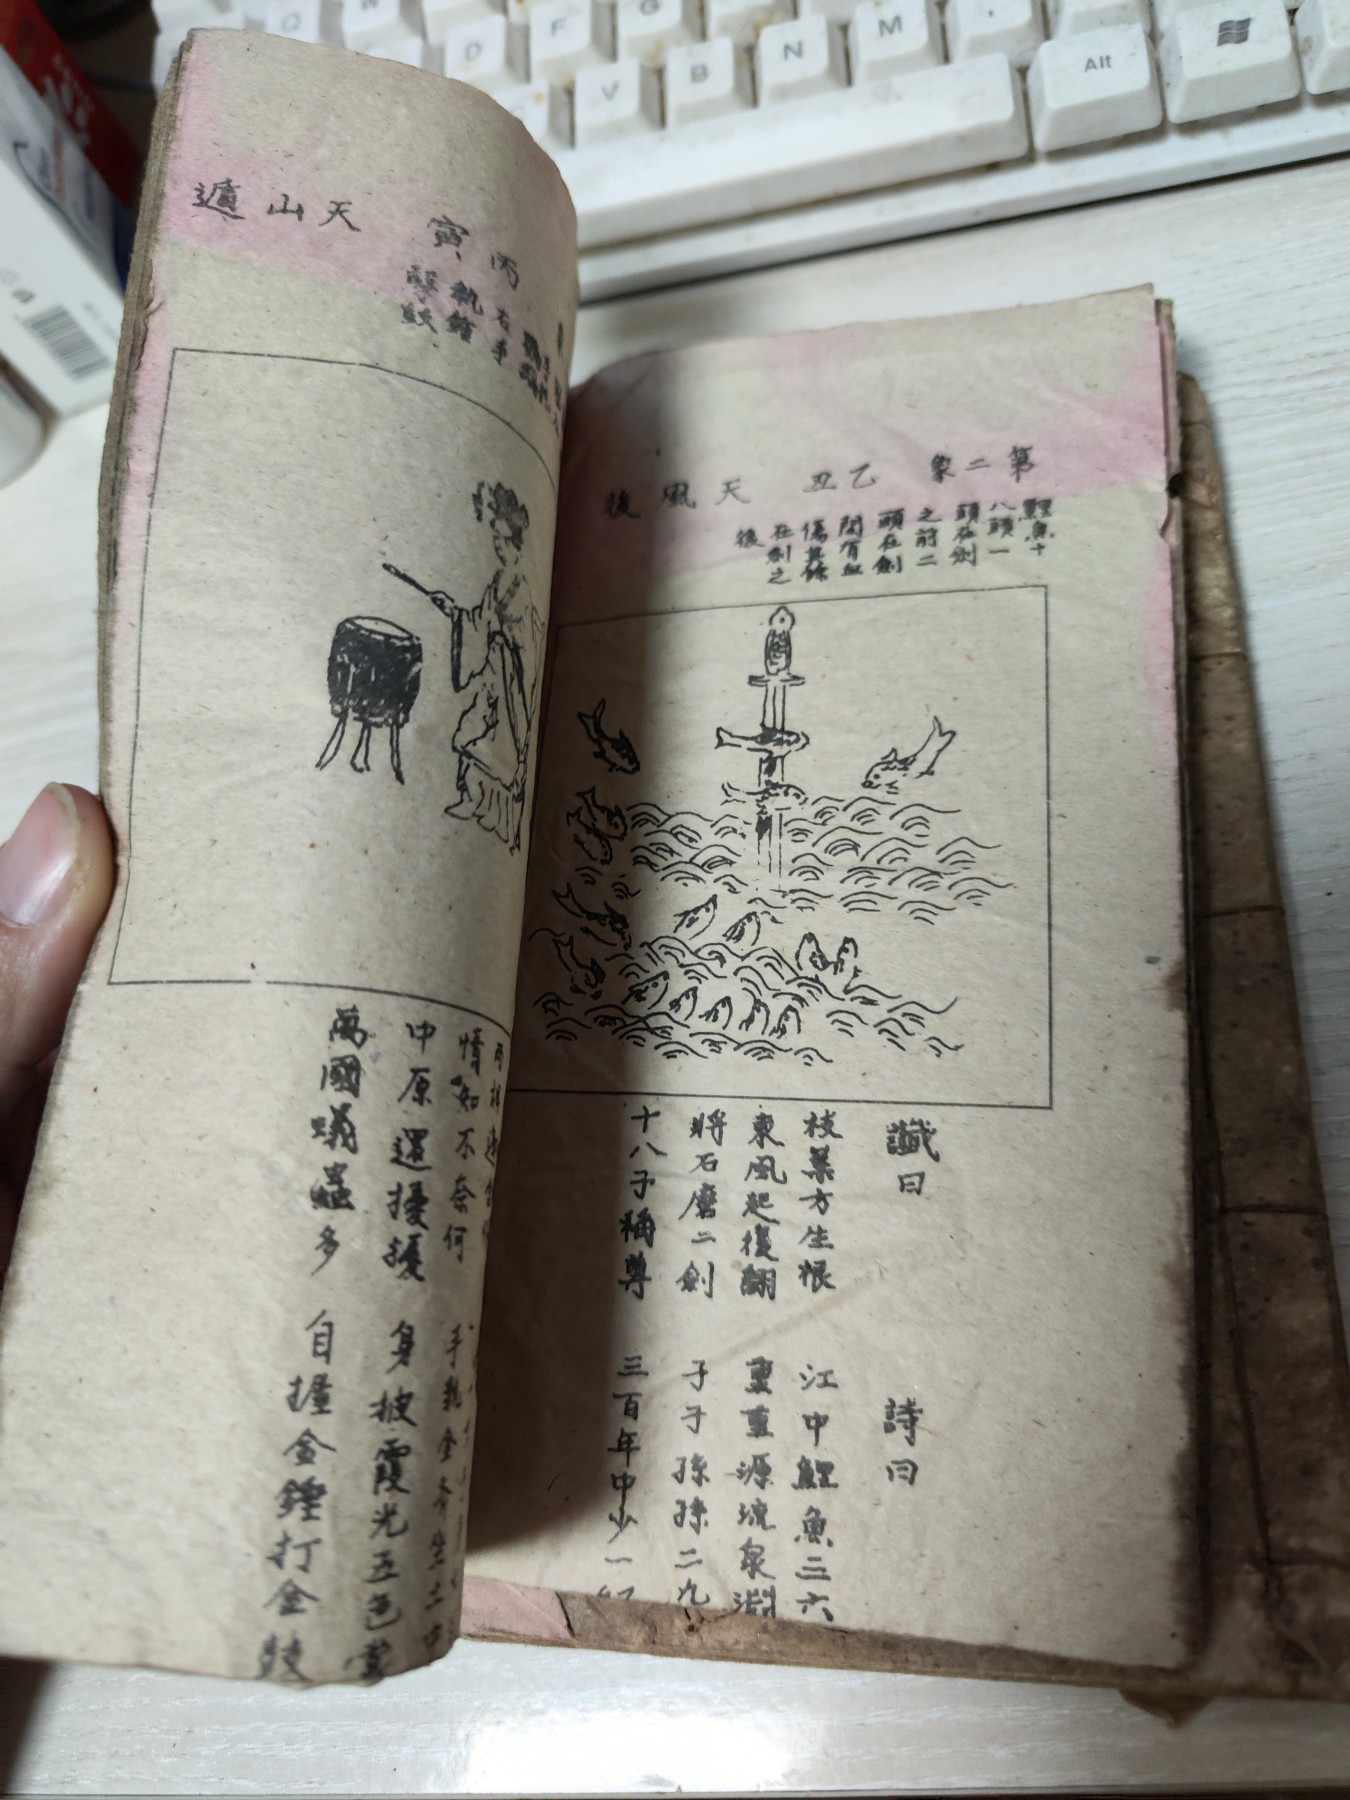 第二象 乙丑 天風後
鯉魚十
八頭一
頭在劍
之前二
頭在劍
間有血
傷其餘
在劍之
後
讖曰
枝葉方生根
東風起復翻
將石磨二劍
十八子稱尊
詩曰
江中鯉魚三六
重重源流泉淵
子子孫孫二九
三百年中少一
丙寅 天山遯
右手
執錐
擊鼓
情知不奈何
中原還擾擾
萬國蟻蟲多
手執金
身披霞光五色雲
自握金錘打金鼓
D
F
G
V
B
N
M
Alt